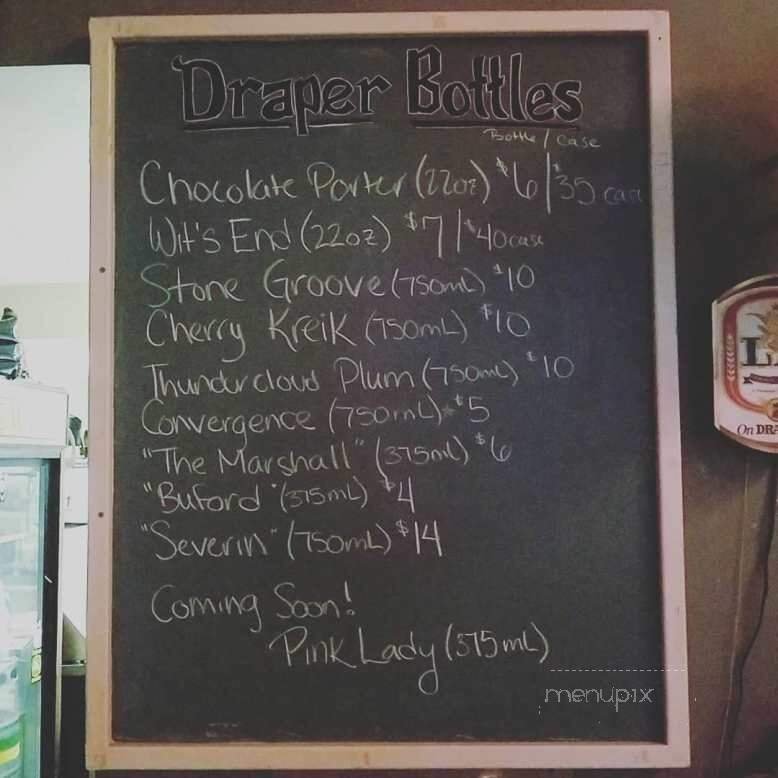 Draper Bottles
Bottle / case
Chocolate Porter (22oz) $6 | $35 case
Wit's End (22oz) $7 | $40 case
Stone Groove (750mL) $10
Cherry Kreik (750mL) $10
Thundercloud Plum (750mL) $10
Convergence (750mL) $5
"The Marshall" (375mL) $6
"Buford" (375mL) $4
"Severin" (750mL) $14
Coming Soon!
Pink Lady (375mL)
menupix
On DRA